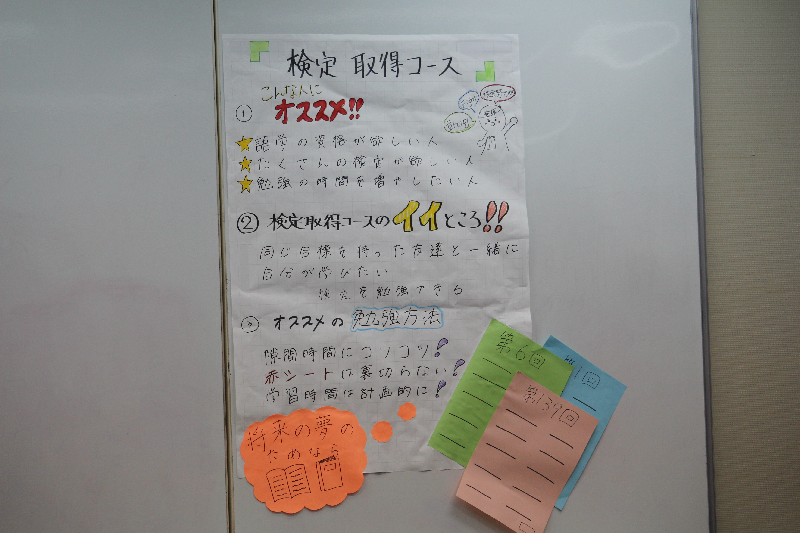 検定 取得コース
こんな人に
① オススメ!!
★語学の資格が欲しい人
★たくさんの検定が欲しい人
★勉強の時間を増やしたい人
② 検定取得コースのイイところ!!
同じ目標を持った友達と一緒に
自分が学びたい
検定を勉強できる
③ オススメの勉強方法
隙間時間にコツコツ!
赤シートは裏切らない!
学習時間は計画的に!
将来の夢の
ためなら
第6回
第137回